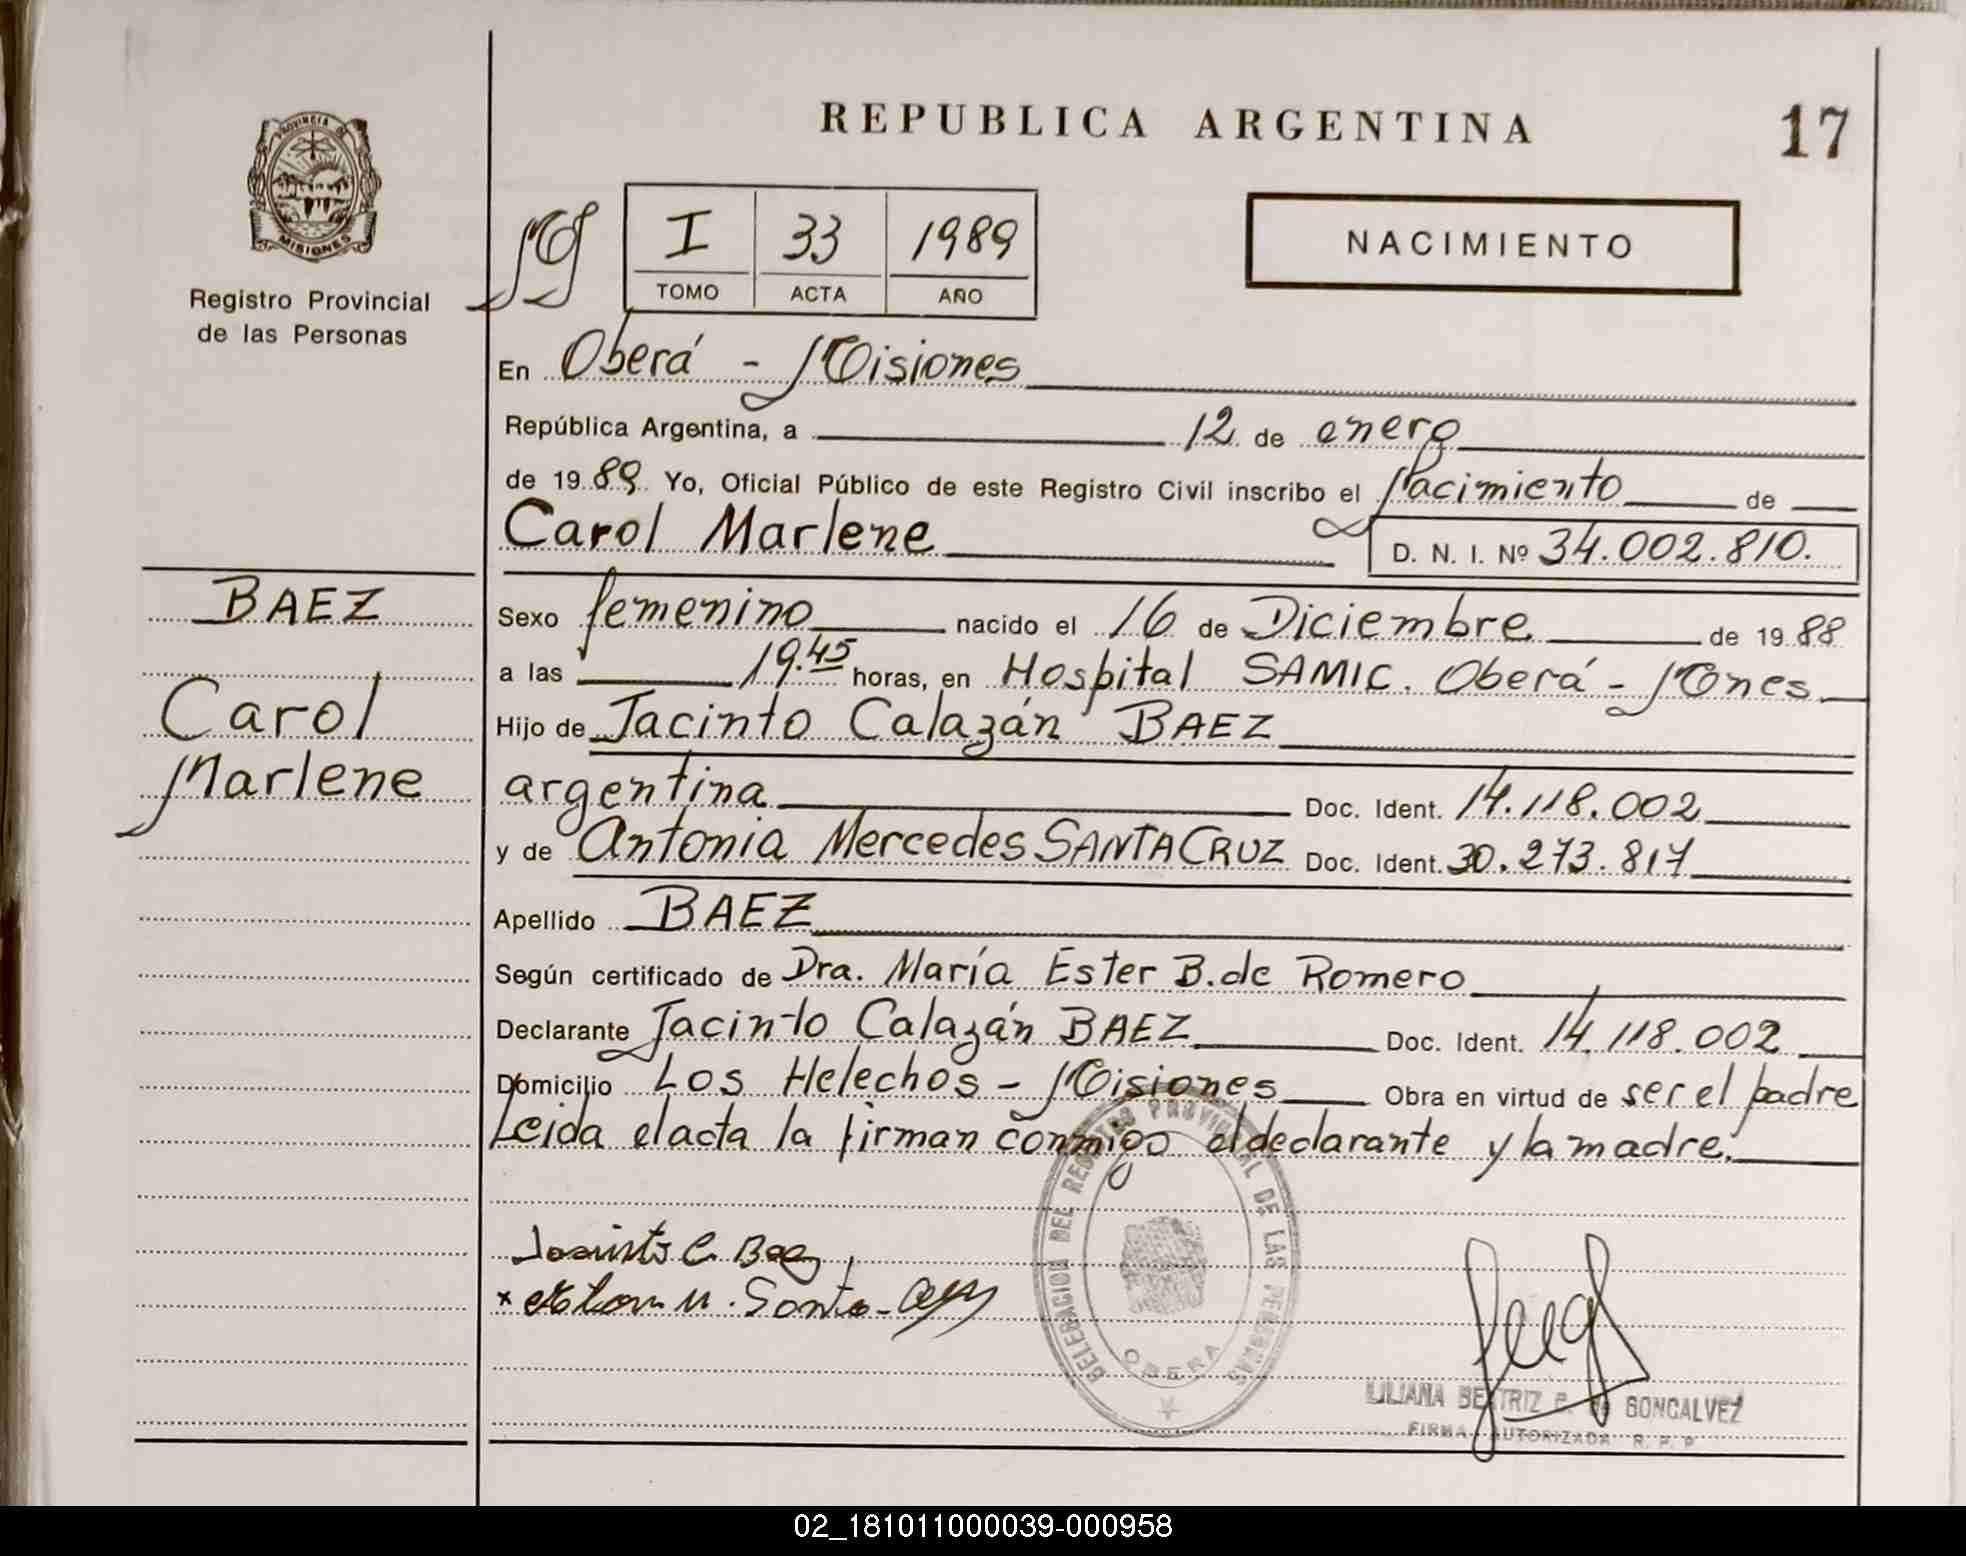 REPUBLICA ARGENTINA
17
PROVINCIA DE
MISIONES
Registro Provincial
de las Personas
I 33 1989
TOMO ACTA AÑO
NACIMIENTO
En Oberá - Misiones
República Argentina, a 12 de enero
de 1989 Yo, Oficial Público de este Registro Civil inscribo el Nacimiento de
Carol Marlene
D. N. I. Nº 34.002.810.
BAEZ
Carol
Marlene
Sexo femenino nacido el 16 de Diciembre de 1988
a las 19.45 horas, en Hospital SAMIC. Oberá - Mnes
Hijo de Jacinto Calazán BAEZ
argentina Doc. Ident. 14.118.002
y de Antonia Mercedes SANTACRUZ Doc. Ident. 30.273.817
Apellido BAEZ
Según certificado de Dra. María Ester B. de Romero
Declarante Jacinto Calazán BAEZ Doc. Ident. 14.118.002
Domicilio Los Helechos - Misiones Obra en virtud de ser el padre
Leida el acta la firman conmigo el declarante y la madre.
Jacinto C. Baez
DELEGACION DEL REGISTRO PROVINCIAL DE LAS PERSONAS
OBERA
LILIANA BEATRIZ de GONCALVEZ
FIRMA AUTORIZADA R. P. P.
02_181011000039-000958